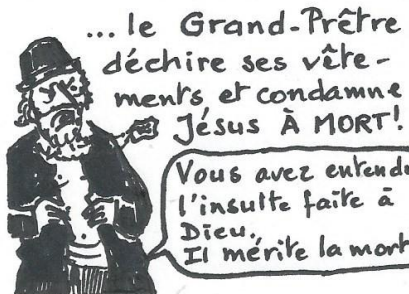 ... le Grand-Prêtre
déchire ses vête-
ments et condamne
Jésus À MORT!
Vous avez entendu
l'insulte faite à
Dieu.
Il mérite la mort